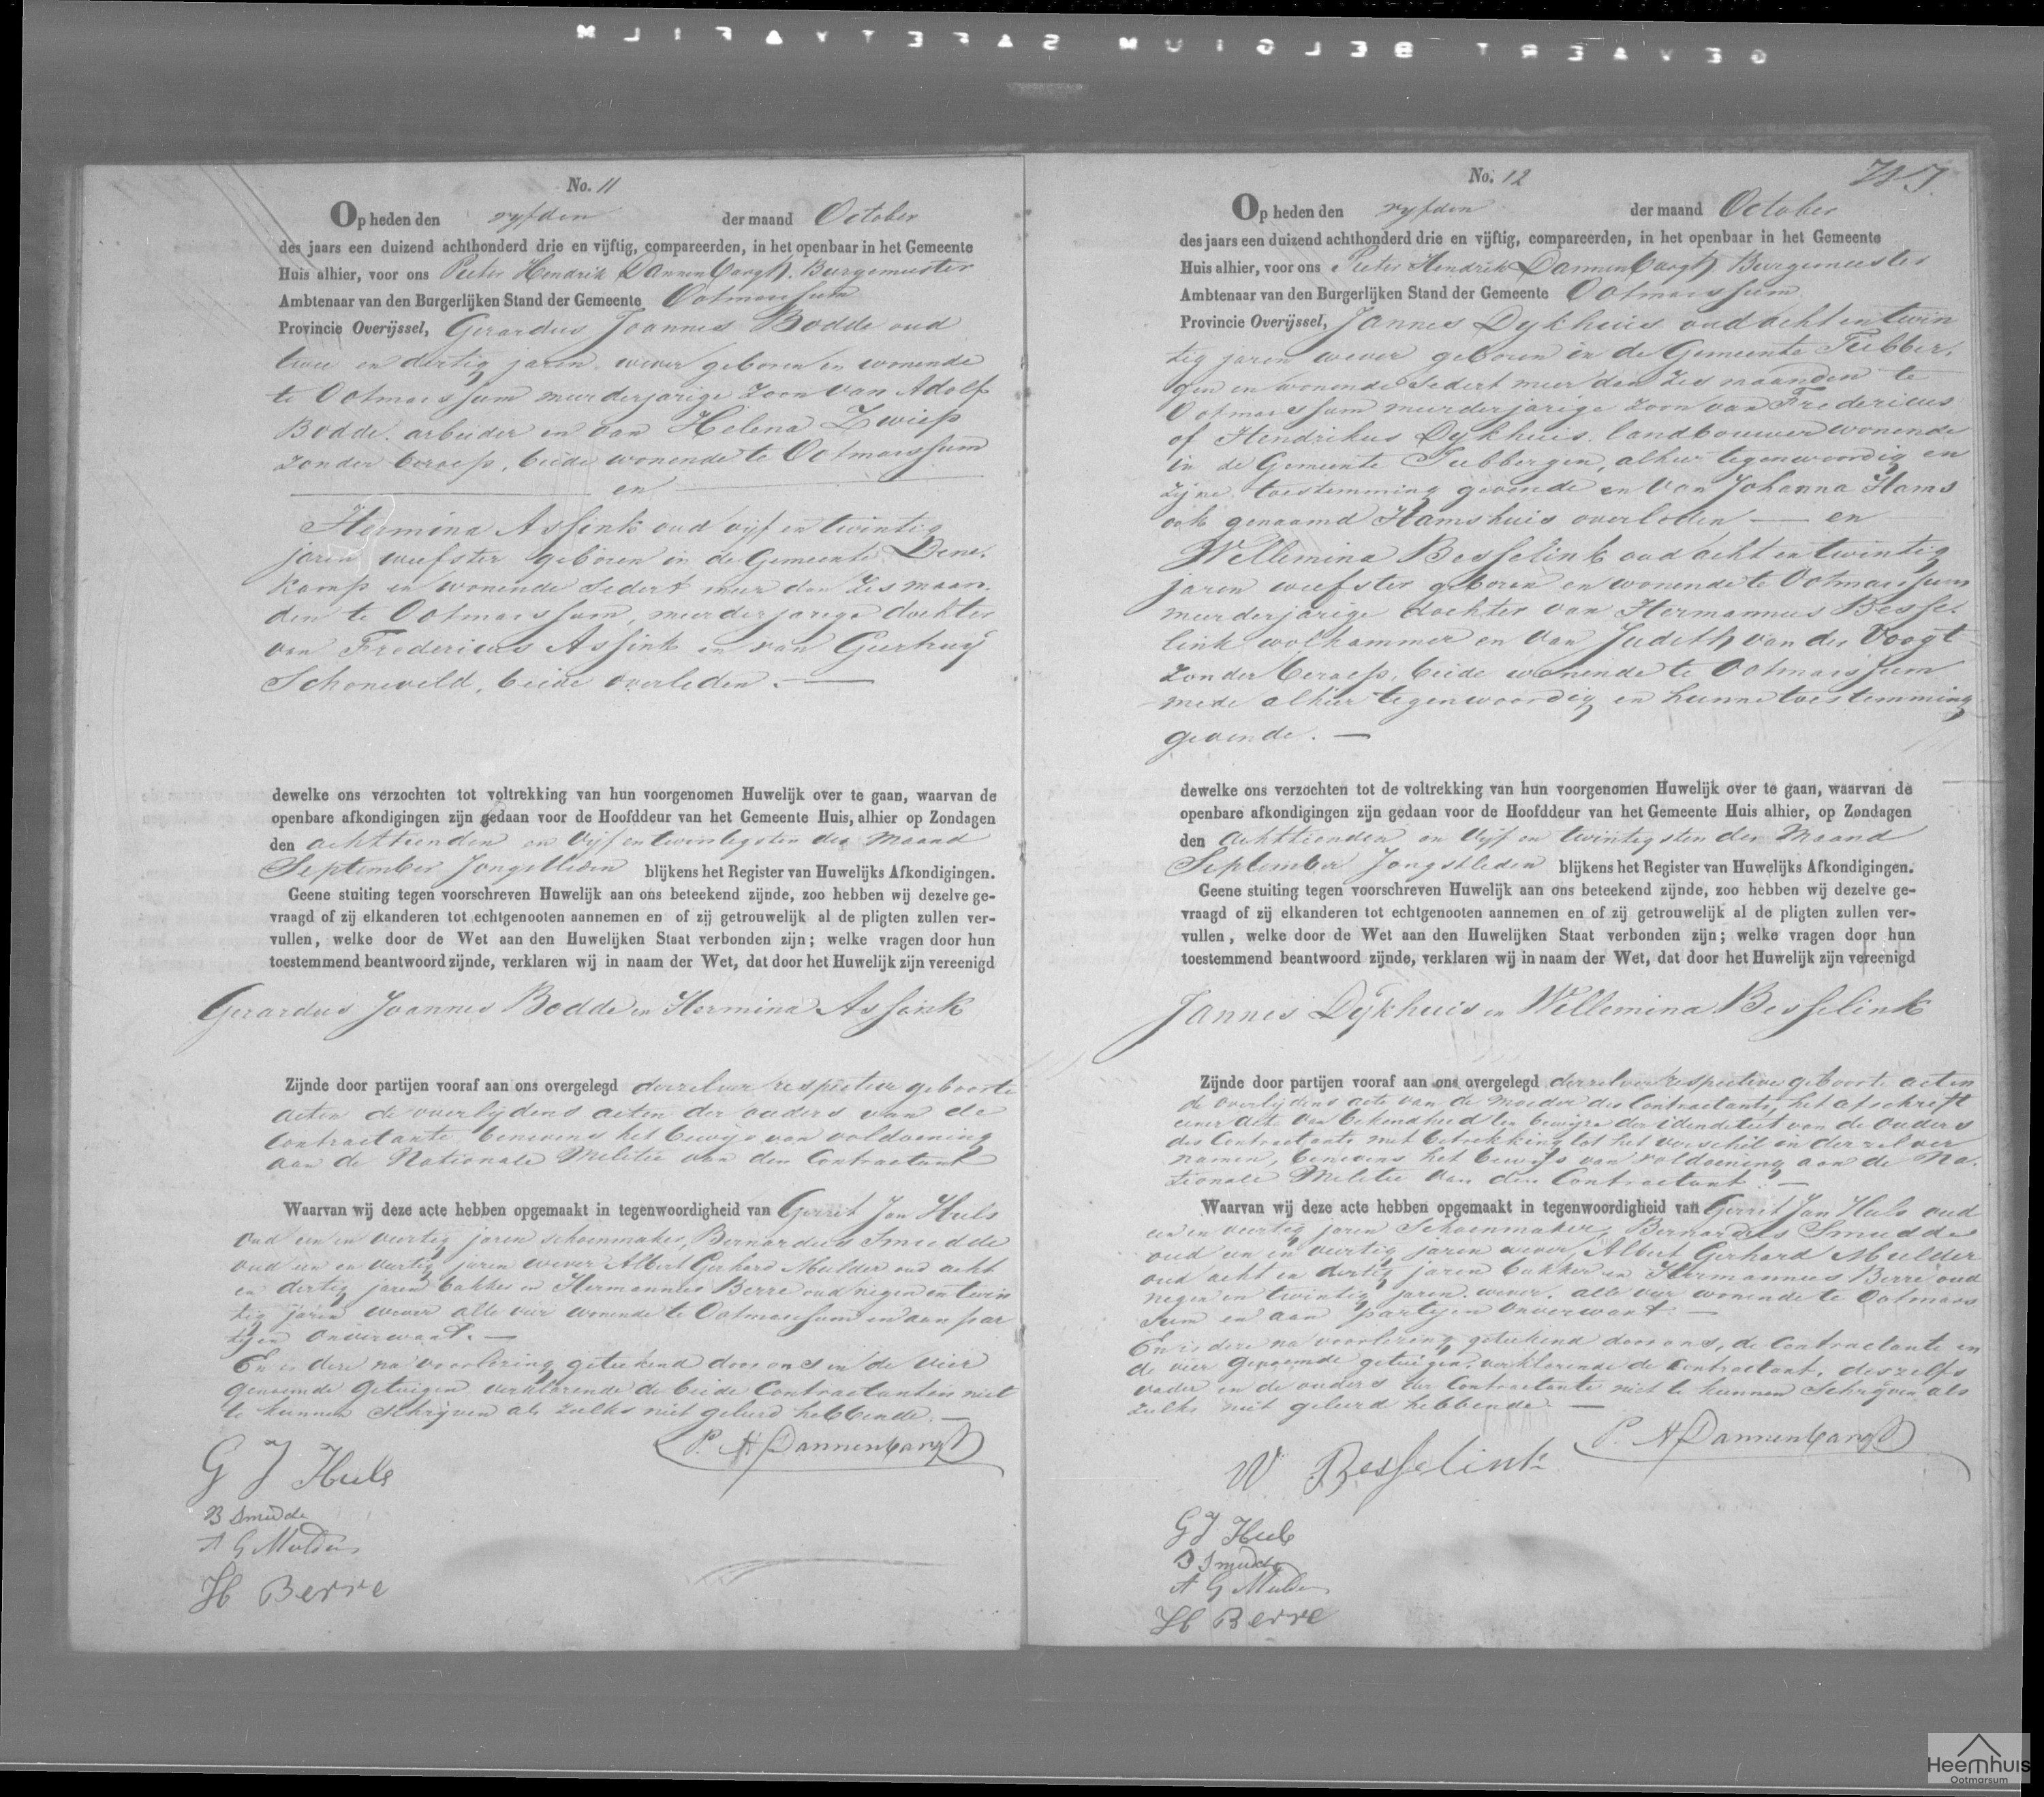 GEVAERT BELGIUM SAFETY FILM
No. 11
Op heden den vyfden der maand October
des jaars een duizend achthonderd drie en vijftig, compareerden, in het openbaar in het Gemeente
Huis alhier, voor ons Pieter Hendrik Dannenbargh, Burgemeester
Ambtenaar van den Burgerlijken Stand der Gemeente Ootmarssum
Provincie Overijssel, Gerardus Joannes Bodde oud
twee en dertig jaren, wever geboren en wonende
te Ootmarssum meerderjarige zoon van Adolf
Bodde, arbeider en van Helena Zwiep
zonder beroep, beide wonende te Ootmarssum
en
Hermina Assink oud vyf en twintig
jaren weefster geboren in de Gemeente Dene,
kamp en wonende sedert meer dan zes maan,
den te Ootmarssum, meerderjarige dochter
van Fredericus Assink en van Geertruy
Schoneveld, beide overleden.
dewelke ons verzochten tot voltrekking van hun voorgenomen Huwelijk over te gaan, waarvan de
openbare afkondigingen zijn gedaan voor de Hoofddeur van het Gemeente Huis, alhier op Zondagen
den achttienden en vijf en twintigsten der maand
September Jongstleden blijkens het Register van Huwelijks Afkondigingen.
Geene stuiting tegen voorschreven Huwelijk aan ons beteekend zijnde, zoo hebben wij dezelve ge-
vraagd of zij elkanderen tot echtgenooten aannemen en of zij getrouwelijk al de pligten zullen ver-
vullen, welke door de Wet aan den Huwelijken Staat verbonden zijn; welke vragen door hun
toestemmend beantwoord zijnde, verklaren wij in naam der Wet, dat door het Huwelijk zijn vereenigd
Gerardus Joannes Bodde en Hermina Assink
Zijnde door partijen vooraf aan ons overgelegd derzelver respective geboorte
acten de overlydens acten der ouders van de
Contractante, benevens het bewys van voldoening
aan de Nationale Militie van den Contractant
Waarvan wij deze acte hebben opgemaakt in tegenwoordigheid van Gerrit Jan Huls
oud een en veertig jaren schoenmaker, Bernardus Smudde
oud een en veertig jaren wever Albert Gerhard Mulder oud acht
en dertig jaren bakker en Hermannus Berre oud negen en twin
tig jaren wever alle vier wonende te Ootmarssum en aan par
tyen onverwant.
En is deze na voorlezing geteekend door ons en de vier
genoemde getuigen verklarende de beide Contractanten niet
te kunnen schryven als zulks niet geleerd hebbende.
P. H. Dannenbargh
G J Huls
B Smudde
A G Mulder
H Berre
No. 12
Op heden den vyfden der maand October
des jaars een duizend achthonderd drie en vijftig, compareerden, in het openbaar in het Gemeente
Huis alhier, voor ons Pieter Hendrik Dannenbargh Burgemeester
Ambtenaar van den Burgerlijken Stand der Gemeente Ootmarssum
Provincie Overijssel, Jannes Dykhuis oud acht en twin
tig jaren wever geboren in de Gemeente Tubber,
gen en wonende sedert meer dan zes maanden te
Ootmarssum meerderjarige zoon van Fredericus
of Hendrikus Dykhuis, landbouwer wonende
in de Gemeente Tubbergen, alhier tegenwoordig en
zyne toestemming gevende en van Johanna Hams
ook genaamd Hamshuis overleden en
Willemina Besselink oud acht en twintig
jaren weefster geboren en wonende te Ootmarssum
meerderjarige dochter van Hermannus Besse,
link wolkammer en van Judith van der Voogt
zonder beroep, beide wonende te Ootmarssum
mede alhier tegenwoordig en hunne toestemming
gevende.
dewelke ons verzochten tot de voltrekking van hun voorgenomen Huwelijk over te gaan, waarvan de
openbare afkondigingen zijn gedaan voor de Hoofddeur van het Gemeente Huis alhier, op Zondagen
den achttienden en vyf en twintigsten der Maand
September Jongstleden blijkens het Register van Huwelijks Afkondigingen.
Geene stuiting tegen voorschreven Huwelijk aan ons beteekend zijnde, zoo hebben wij dezelve ge-
vraagd of zij elkanderen tot echtgenooten aannemen en of zij getrouwelijk al de pligten zullen ver-
vullen, welke door de Wet aan den Huwelijken Staat verbonden zijn; welke vragen door hun
toestemmend beantwoord zijnde, verklaren wij in naam der Wet, dat door het Huwelijk zijn vereenigd
Jannes Dykhuis en Willemina Besselink
Zijnde door partijen vooraf aan ons overgelegd derzelver respective geboorte acten
de overlydens acte van de moeder des Contractants, het afschrift
eener acte van bekendheid ten bewyze der idendeteit van de ouders
des Contractants met betrekking tot het verschil in derzelver
namen, benevens het bewys van voldoening aan de Na,
tionale Militie van den Contractant.
Waarvan wij deze acte hebben opgemaakt in tegenwoordigheid van Gerrit Jan Huls oud
een en veertig jaren Schoenmaker, Bernardus Smudde
oud een en veertig jaren wever, Albert Gerhard Mulder
oud acht en dertig jaren bakker en Hermannus Berre oud
negen en twintig jaren wever, alle vier wonende te Ootmars
sum en aan partyen onverwant.
En is deze na voorlezing geteekend door ons, de Contractante en
de vier genoemde getuigen, verklarende de Contractant, deszelfs
vader en de ouders der Contractante niet te kunnen schryven als
zulks niet geleerd hebbende.
P. H. Dannenbargh
W Besselink
G J Huls
B Smudde
A G Mulder
H Berre
Heemhuis
Ootmarsum